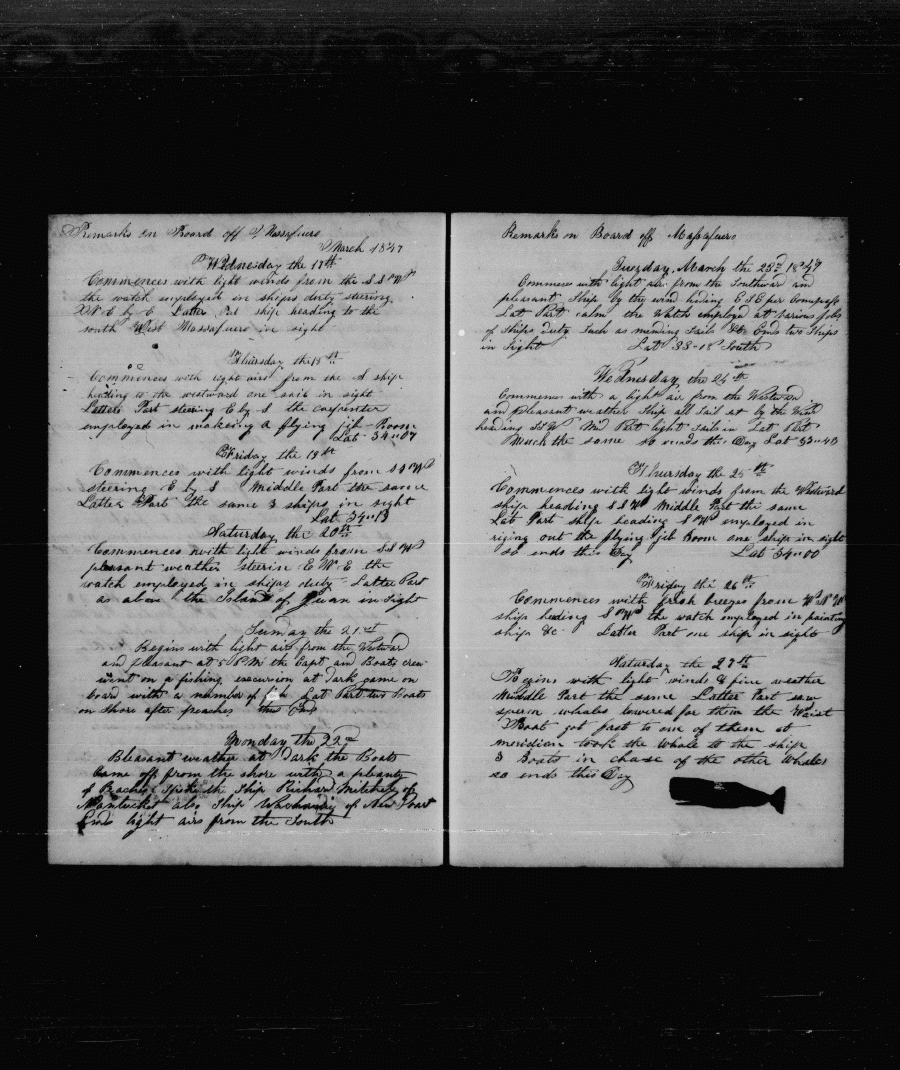 Remarks on Board off Massafuero
March 1847
Wednesday the 17th
Commences with light winds from the S S W
the watch employed in ships duty steering
E by E Latter Part ship heading to the
south West Massafuero in sight
Thursday the 18th
Commences with light airs from the S ship
heading to the westward one sail in sight
Latter Part steering E by S the carpenter
employed in makeing a flying jib-Boom
Lat 34"07
Friday the 19th
Commences with light winds from S S W
steering E by S Middle Part the same
Latter Part the same 3 ships in sight
Lat 34"13
Saturday the 20th
Commences with light winds from S S W
pleasant weather steerin E the
watch employed in ships duty - Latter Part
as above the Island of Juan in sight
Sunday the 21st
Begins with light airs from the Westward
and pleasant at 5 P M the Capt and Boats crew
went on a fishing excursion at Dark came on
board with a number of fish Lat Part two Boats
on shore after peaches thus End
Monday the 22nd
Pleasant weather at Dark the Boats
came off from the shore with a pleanty
of Peaches Spoke the Ship Richard Mitchell of
Nantucket also Ship of New Port
Ends light airs from the South
Remarks on Board off Massafuero
Tuesday March the 23rd 1847
Commences with light air from the Southward and
pleasant Ship by the wind hiding E S E per Compass
Lat Part calm the Watch employed at various Jobs
of Ships duty Such as mending Sails &c End two Ships
in Sight Lat 33-18 South
Wednesday the 24th
Commences with a light air from the Westward
and pleasant weather Ship all Sail set by the Wind
heading S S W Mid Part light sails in Lat Part
Much the same so ends this Day Lat 33"43
Thursday the 25th
Commences with light winds from the Westward
ship heading S S W Middle Part the same
Lat Part ship heading S W employed in
riging out the flying jib Boom one ship in sight
so ends this Day Lat 34"00
Friday the 26th
Commences with fresh breezes from W N W
ship heding S W the watch employed in painting
ship &c Latter Part one ship in sight
Saturday the 27th
Begins with light winds & fine weather
Middle Part the same Latter Part saw
sperm whales lowered for them the Waist
Boat got fast to one of them at
meridian took the whale to the ship
3 Boats in chase of the other Whales
so ends this Day